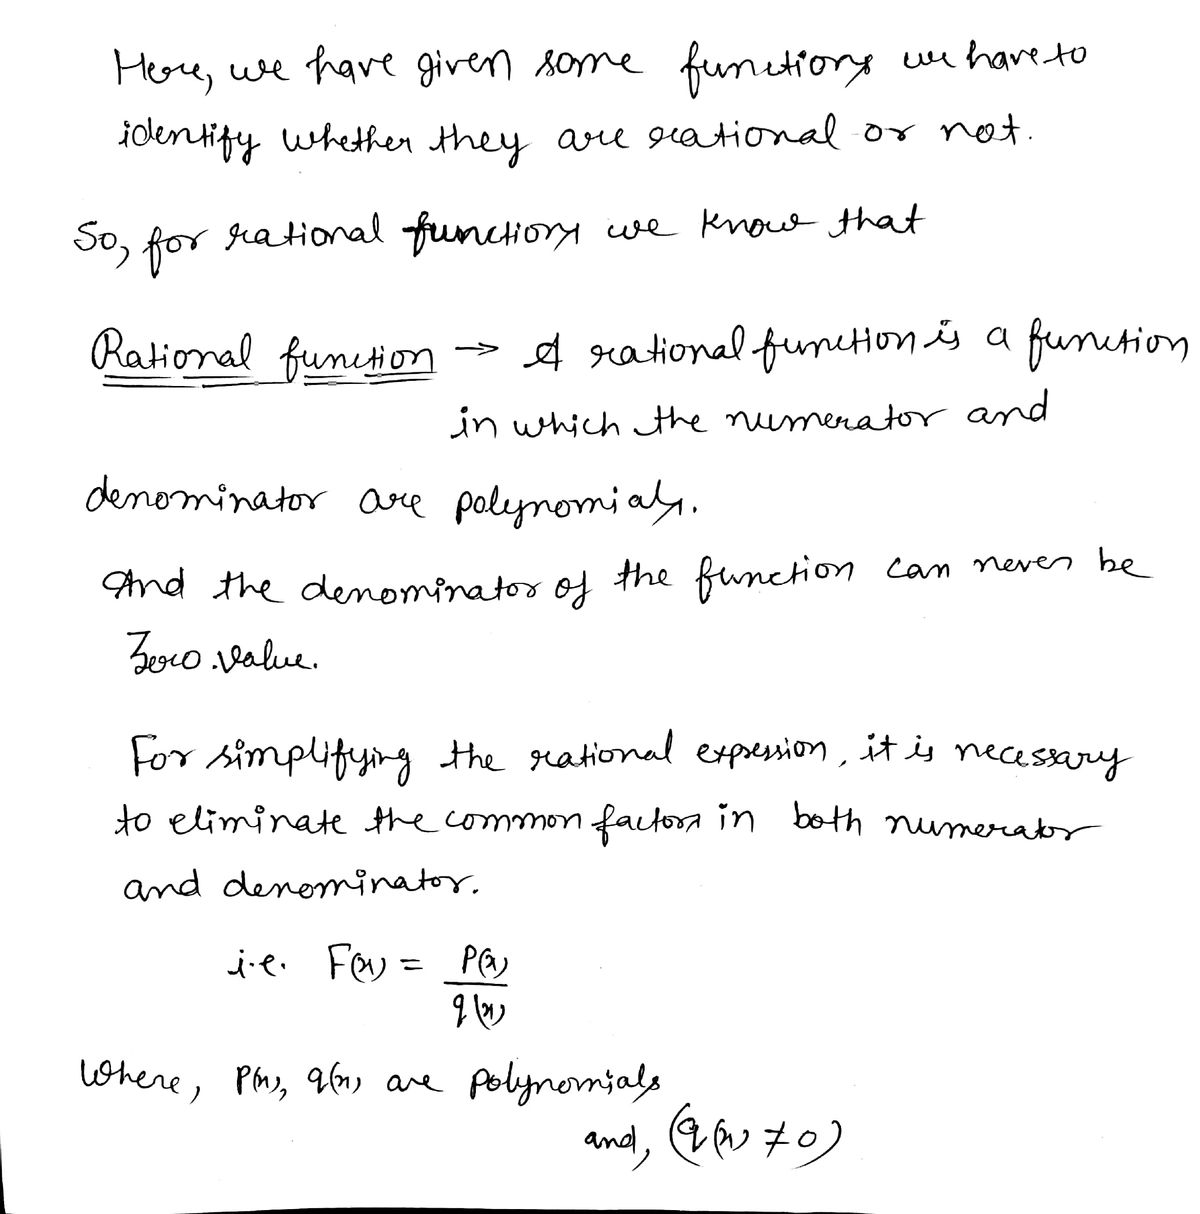 Here, we have given some functions we have to
identify whether they are rational or not.
So, for rational functions we know that
Rational function → A rational function is a function
in which the numerator and
denominator are polynomials.
And the denominator of the function can never be
Zero value.
For simplifying the rational expression, it is necessary
to eliminate the common factors in both numerator
and denominator.
i.e. F(x) = P(x)
q(x)
Where, p(x), q(x) are polynomials
and, (q(x) ≠ 0)